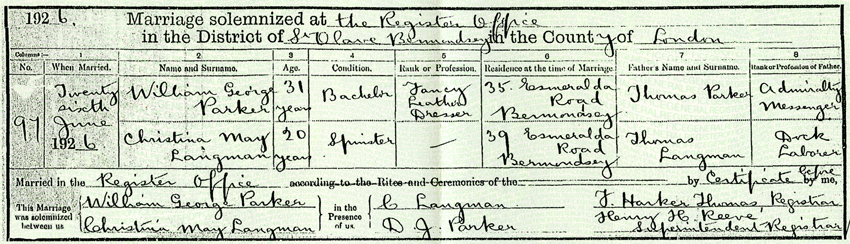 1926. Marriage solemnized at the Register Office
in the District of St Olave Bermondsey in the County of London
Columns:— 1 2 3 4 5 6 7 8
No. When Married. Name and Surname. Age. Condition. Rank or Profession. Residence at the time of Marriage. Father's Name and Surname. Rank or Profession of Father.
97
Twenty
sixth
June
1926
William George
Parker
31
years
Bachelor
Fancy
Leather
Dresser
35. Esmeralda
Road
Bermondsey
Thomas Parker
Admiralty
Messenger
Christina May
Langman
20
years
Spinster
—
39 Esmeralda
Road
Bermondsey
Thomas
Langman
Dock
Laborer
Married in the Register Office according to the Rites and Ceremonies of the by Certificate before me,
This Marriage
was solemnized
between us
William George Parker
Christina May Langman
in the
Presence
of us.
C Langman
D. J. Parker
F. Harker Thomas, Registrar
Henry H. Reeve
Superintendent Registrar